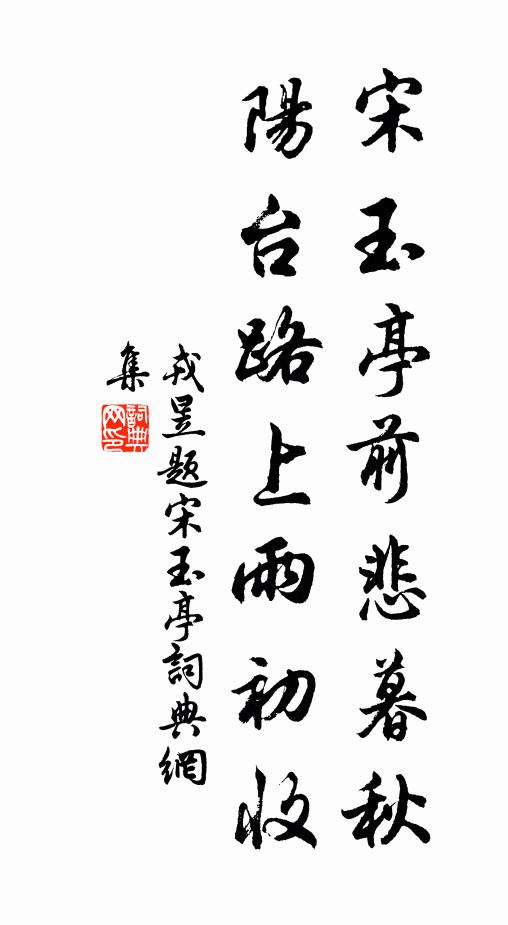 宋玉亭前悲暮秋
陽台路上雨初收
戎昱題宋玉亭詞典網
集
詞典
网印